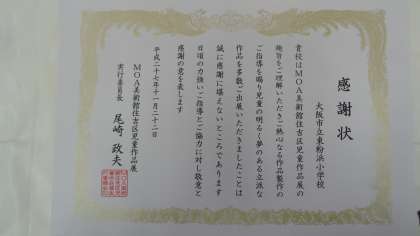 感謝状
大阪市立東粉浜小学校
貴校はMOA美術館住吉区児童作品展の
趣旨をご理解いただきご熱心なる作品製作の
ご指導を賜り児童の明るく夢のある立派な
作品を多数ご出展いただきましたことは
誠に感謝に堪えないところであります
日頃の力強いご指導とご協力に対し敬意と
感謝の意を表します
平成二十七年十一月二十二日
MOA美術館住吉区児童作品展
実行委員長 尾崎 政夫